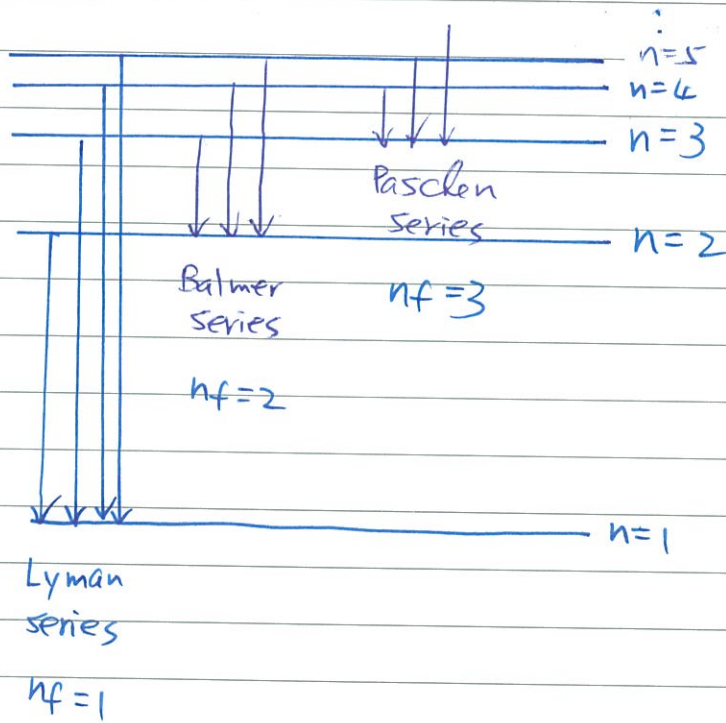 n=5
n=4
n=3
Paschen
series
n=2
Balmer
series
nf=3
nf=2
n=1
Lyman
series
nf=1